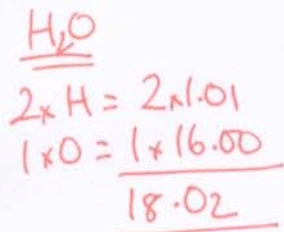 H₂O
2 x H = 2 x 1.01
1 x O = 1 x 16.00
18.02